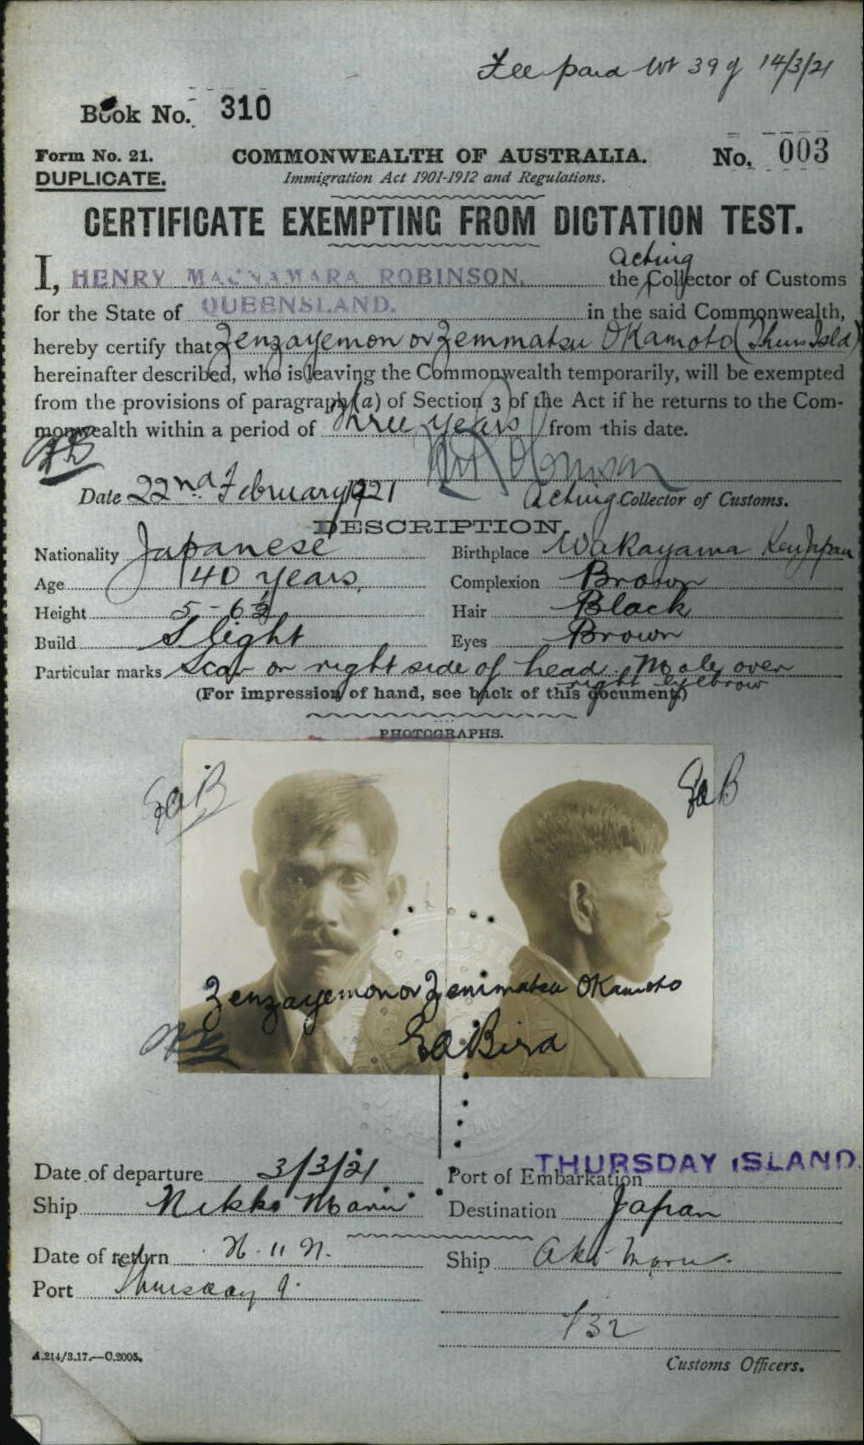 Fee paid 39 14/3/21
Book No. 310
Form No. 21. COMMONWEALTH OF AUSTRALIA. No. 003
DUPLICATE. Immigration Act 1901-1912 and Regulations.
CERTIFICATE EXEMPTING FROM DICTATION TEST.
I, HENRY MACNAMARA ROBINSON, the Acting Collector of Customs
for the State of QUEENSLAND. in the said Commonwealth,
hereby certify that Zenzayemon or Zemmatsu Okamoto (Thurs Isld)
hereinafter described, who is leaving the Commonwealth temporarily, will be exempted
from the provisions of paragraph (a) of Section 3 of the Act if he returns to the Com-
monwealth within a period of Three years from this date.
Date 22nd February 1921 Acting Collector of Customs.
DESCRIPTION.
Nationality Japanese Birthplace Wakayama Ken Japan
Age 40 years, Complexion Brown
Height 5-6½ Hair Black
Build Slight Eyes Brown
Particular marks Scar on right side of head. Mole over
right eyebrow
(For impression of hand, see back of this document)
PHOTOGRAPHS.
EaB EaB
Zenzayemon or Zenimatsu Okamoto
Ea Bird
Date of departure 3/3/21 Port of Embarkation THURSDAY ISLAND.
Ship Nikko Maru Destination Japan
Date of return Ship Aki Maru.
Port Thursday I.
132
A.214/3.17.—C.2005. Customs Officers.